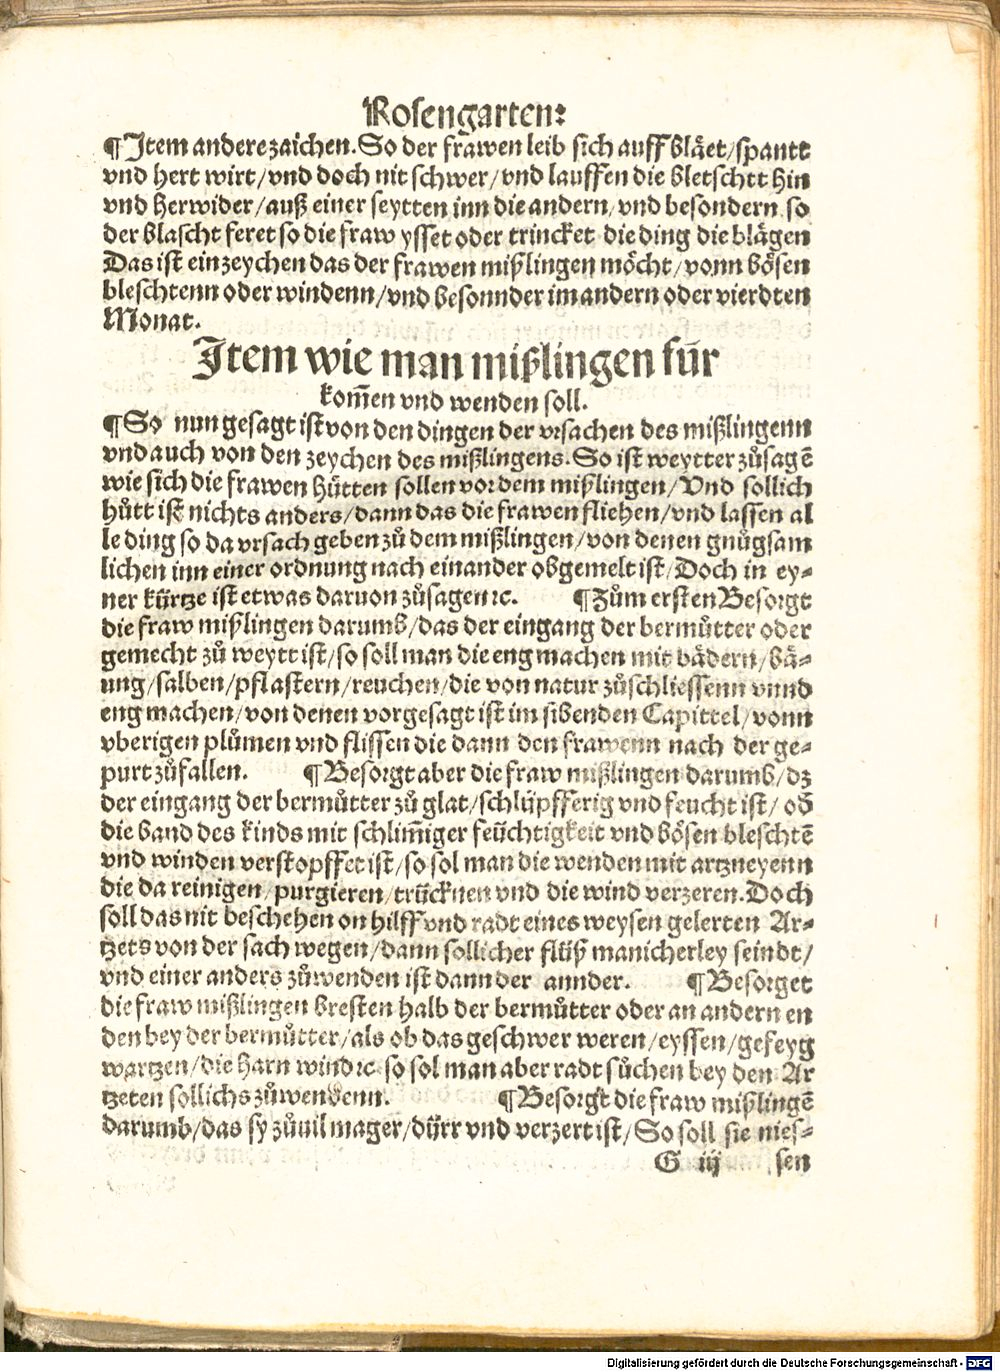 Rosengarten:
¶Item andere zaichen. So der frawen leib sich auff bläet/spantt
vnd hert wirt/vnd doch nit schwer/vnd lauffen die bletschtt hin
vnd herwider/auß einer seytten inn die andern/vnd besondern so
der blascht feret so die fraw ysset oder trincket die ding die blägen
Das ist ein zeychen das der frawen mißlingen möcht/vonn bösen
bleschtenn oder windenn/vnd besonnder im andern oder vierdten
Monat.
Item wie man mißlingen für
kom̄en vnd wenden soll.
¶So nun gesagt ist von den dingen der vrsachen des mißlingenn
vnd auch von den zeychen des mißlingens. So ist weytter zůsagē
wie sich die frawen hütten sollen vor dem mißlingen/Vnd sollich
hütt ist nichts anders/dann das die frawen fliehen/vnd lassen al
le ding so da vrsach geben zů dem mißlingen/von denen gnůgsam
lichen inn einer ordnung nach einander obgemelt ist/Doch in ey-
ner kürtze ist etwas daruon zůsagen ꝛc. ¶Zům ersten Besorgt
die fraw mißlingen darumb/das der eingang der bermůtter oder
gemecht zů weytt ist/so soll man die eng machen mit bädern/bä-
ung/salben/pflastern/reuchen/die von natur zůschliessenn vnnd
eng machen/von denen vorgesagt ist im sibenden Capittel/vonn
vberigen plůmen vnd flissen die dann den frawenn nach der ge-
purt zůfallen. ¶Besorgt aber die fraw mißlingen darumb/dz
der eingang der bermůtter zů glat/schlüpfferig vnd feucht ist/od̄
die band des kinds mit schlim̄iger feüchtigkeit vnd bösen bleschtē
vnd winden verstopffet ist/so sol man die wenden mit artzneyenn
die da reinigen/purgieren/trücknen vnd die wind verzeren. Doch
soll das nit beschehen on hilff vnd radt eines weysen gelerten Ar-
tzets von der sach wegen/dann sollicher flüß manicherley seindt/
vnd einer anders zůwenden ist dann der annder. ¶Besorget
die fraw mißlingen bresten halb der bermůtter oder an andern en
den bey der bermůtter/als ob das geschwer weren/eyssen/gefeyg
wartzen/die harn wind ꝛc. so sol man aber radt sůchen bey den Ar
tzeten sollichs zůwendenn. ¶Besorgt die fraw mißlingē
darumb/das sy zůuil mager/dürr vnd verzert ist/So soll sie nies-
G iij sen
Digitalisierung gefördert durch die Deutsche Forschungsgemeinschaft - DFG